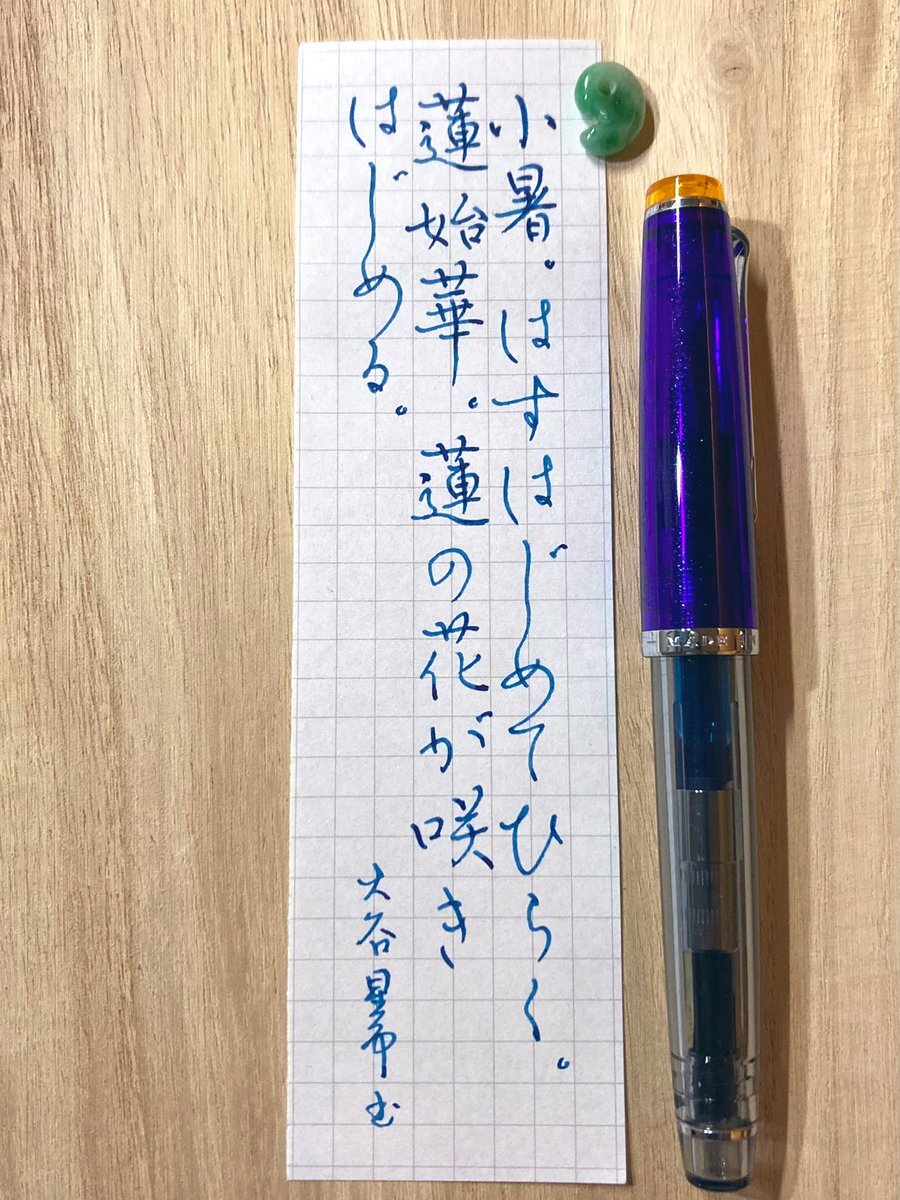 小暑。はすはじめてひらく。
蓮始華。蓮の花が咲き
はじめる。
大谷
MADE